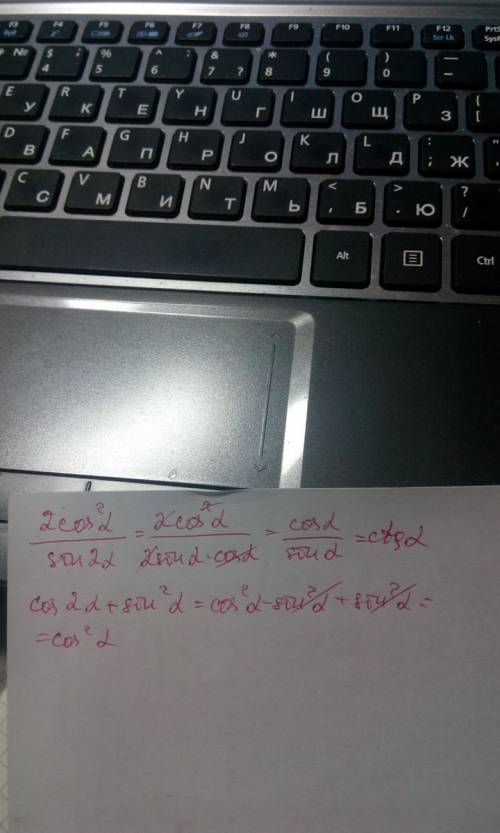 F3 F4 F5 F6 F7 F8 F9 F10 F11 F12 PrtS
Scr Lk SysR
№ $ ; 4 % : 5 ^ 6 & ? 7 * 8 ( 9 ) 0 — –
E У R К T Е Y Н U Г I Ш O Щ P З { [
D В F А G П H Р J О K Л L Д : ; Ж "
C С V М B И N Т M Ь < , Б > . Ю ? /
Alt Ctrl
2cos²α/sin2α = 2cos²α/2sinα·cosα = cosα/sinα = ctgα
cos2α + sin²α = cos²α - sin²α + sin²α =
= cos²α